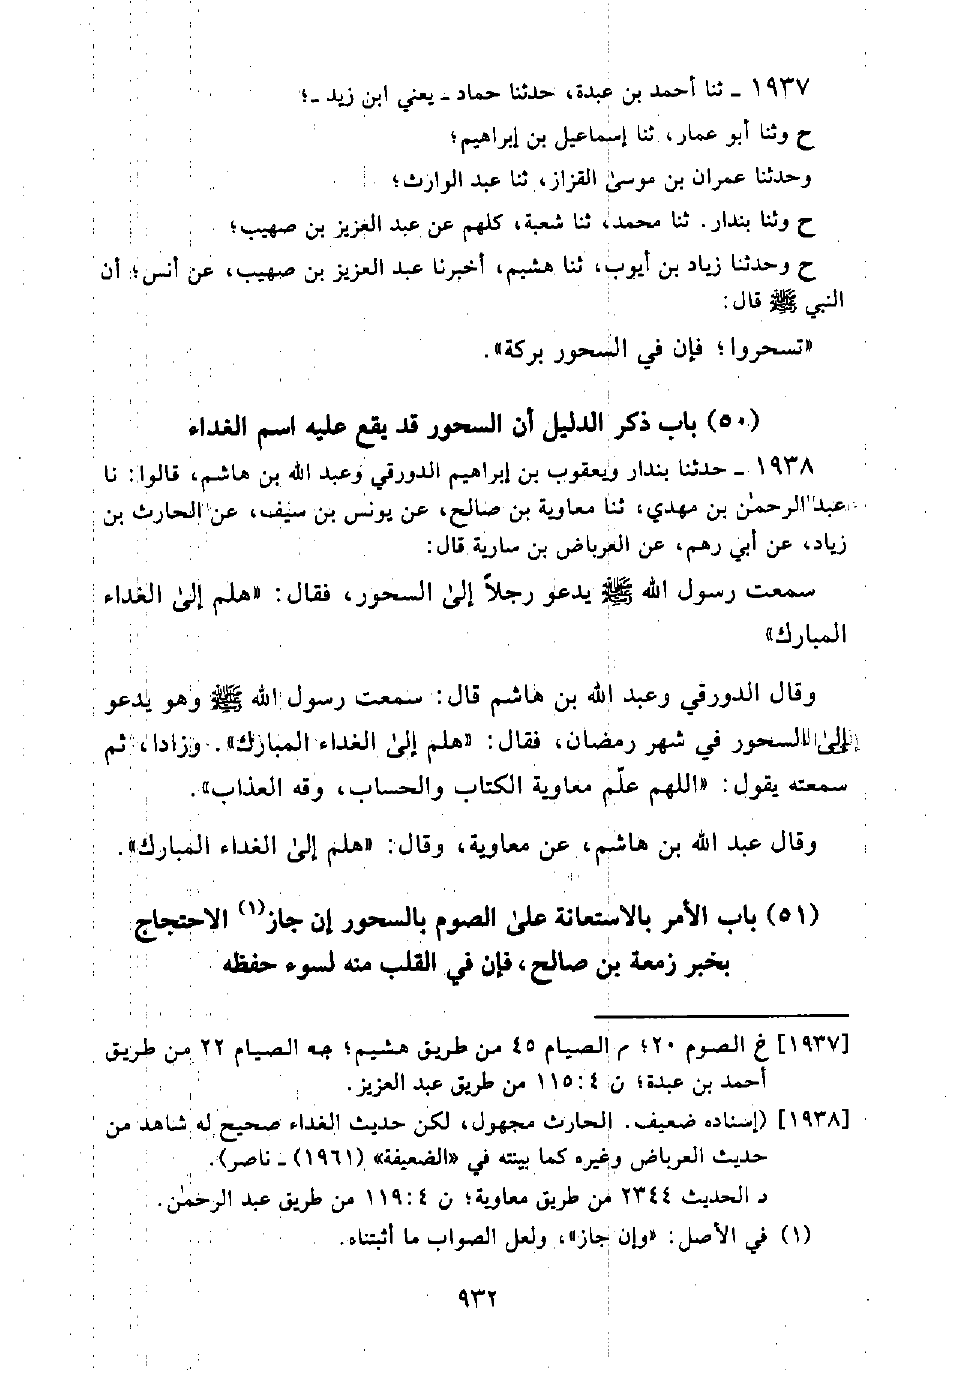 ١٩٣٧ ـ ثنا أحمد بن عبدة، حدثنا حماد ـ يعني ابن زيد ـ؛
ح وثنا أبو عمار، ثنا إسماعيل بن إبراهيم؛
وحدثنا عمران بن موسىٰ القزاز، ثنا عبد الوارث؛
ح وثنا بندار. ثنا محمد، ثنا شعبة، كلهم عن عبد العزيز بن صهيب؛
ح وحدثنا زياد بن أيوب، ثنا هشيم، أخبرنا عبد العزيز بن صهيب، عن أنس؛ أن
النبي ﷺ قال:
«تسحروا؛ فإن في السحور بركة».
(٥٠) باب ذكر الدليل أن السحور قد يقع عليه اسم الغداء
١٩٣٨ ـ حدثنا بندار ويعقوب بن إبراهيم الدورقي وعبد الله بن هاشم، قالوا: نا
عبد الرحمٰن بن مهدي، ثنا معاوية بن صالح، عن يونس بن سيف، عن الحارث بن
زياد، عن أبي رهم، عن العرباض بن سارية قال:
سمعت رسول الله ﷺ يدعو رجلاً إلىٰ السحور، فقال: «هلم إلىٰ الغداء
المبارك»
وقال الدورقي وعبد الله بن هاشم قال: سمعت رسول الله ﷺ وهو يدعو
إلىٰ السحور في شهر رمضان، فقال: «هلم إلىٰ الغداء المبارك». وزادا، ثم
سمعته يقول: «اللهم علّم معاوية الكتاب والحساب، وقه العذاب».
وقال عبد الله بن هاشم، عن معاوية، وقال: «هلم إلىٰ الغداء المبارك».
(٥١) باب الأمر بالاستعانة علىٰ الصوم بالسحور إن جاز(١) الاحتجاج
بخبر زمعة بن صالح، فإن في القلب منه لسوء حفظه
[١٩٣٧] خ الصوم ٢٠؛ م الصيام ٤٥ من طريق هشيم؛ جه الصيام ٢٢ من طريق
أحمد بن عبدة؛ ن ٤: ١١٥ من طريق عبد العزيز.
[١٩٣٨] (إسناده ضعيف. الحارث مجهول، لكن حديث الغداء صحيح له شاهد من
حديث العرباض وغيره كما بينته في «الضعيفة» (١٩٦١) ـ ناصر).
د الحديث ٢٣٤٤ من طريق معاوية؛ ن ٤: ١١٩ من طريق عبد الرحمٰن.
(١) في الأصل: «وإن جاز»، ولعل الصواب ما أثبتناه.
٩٣٢